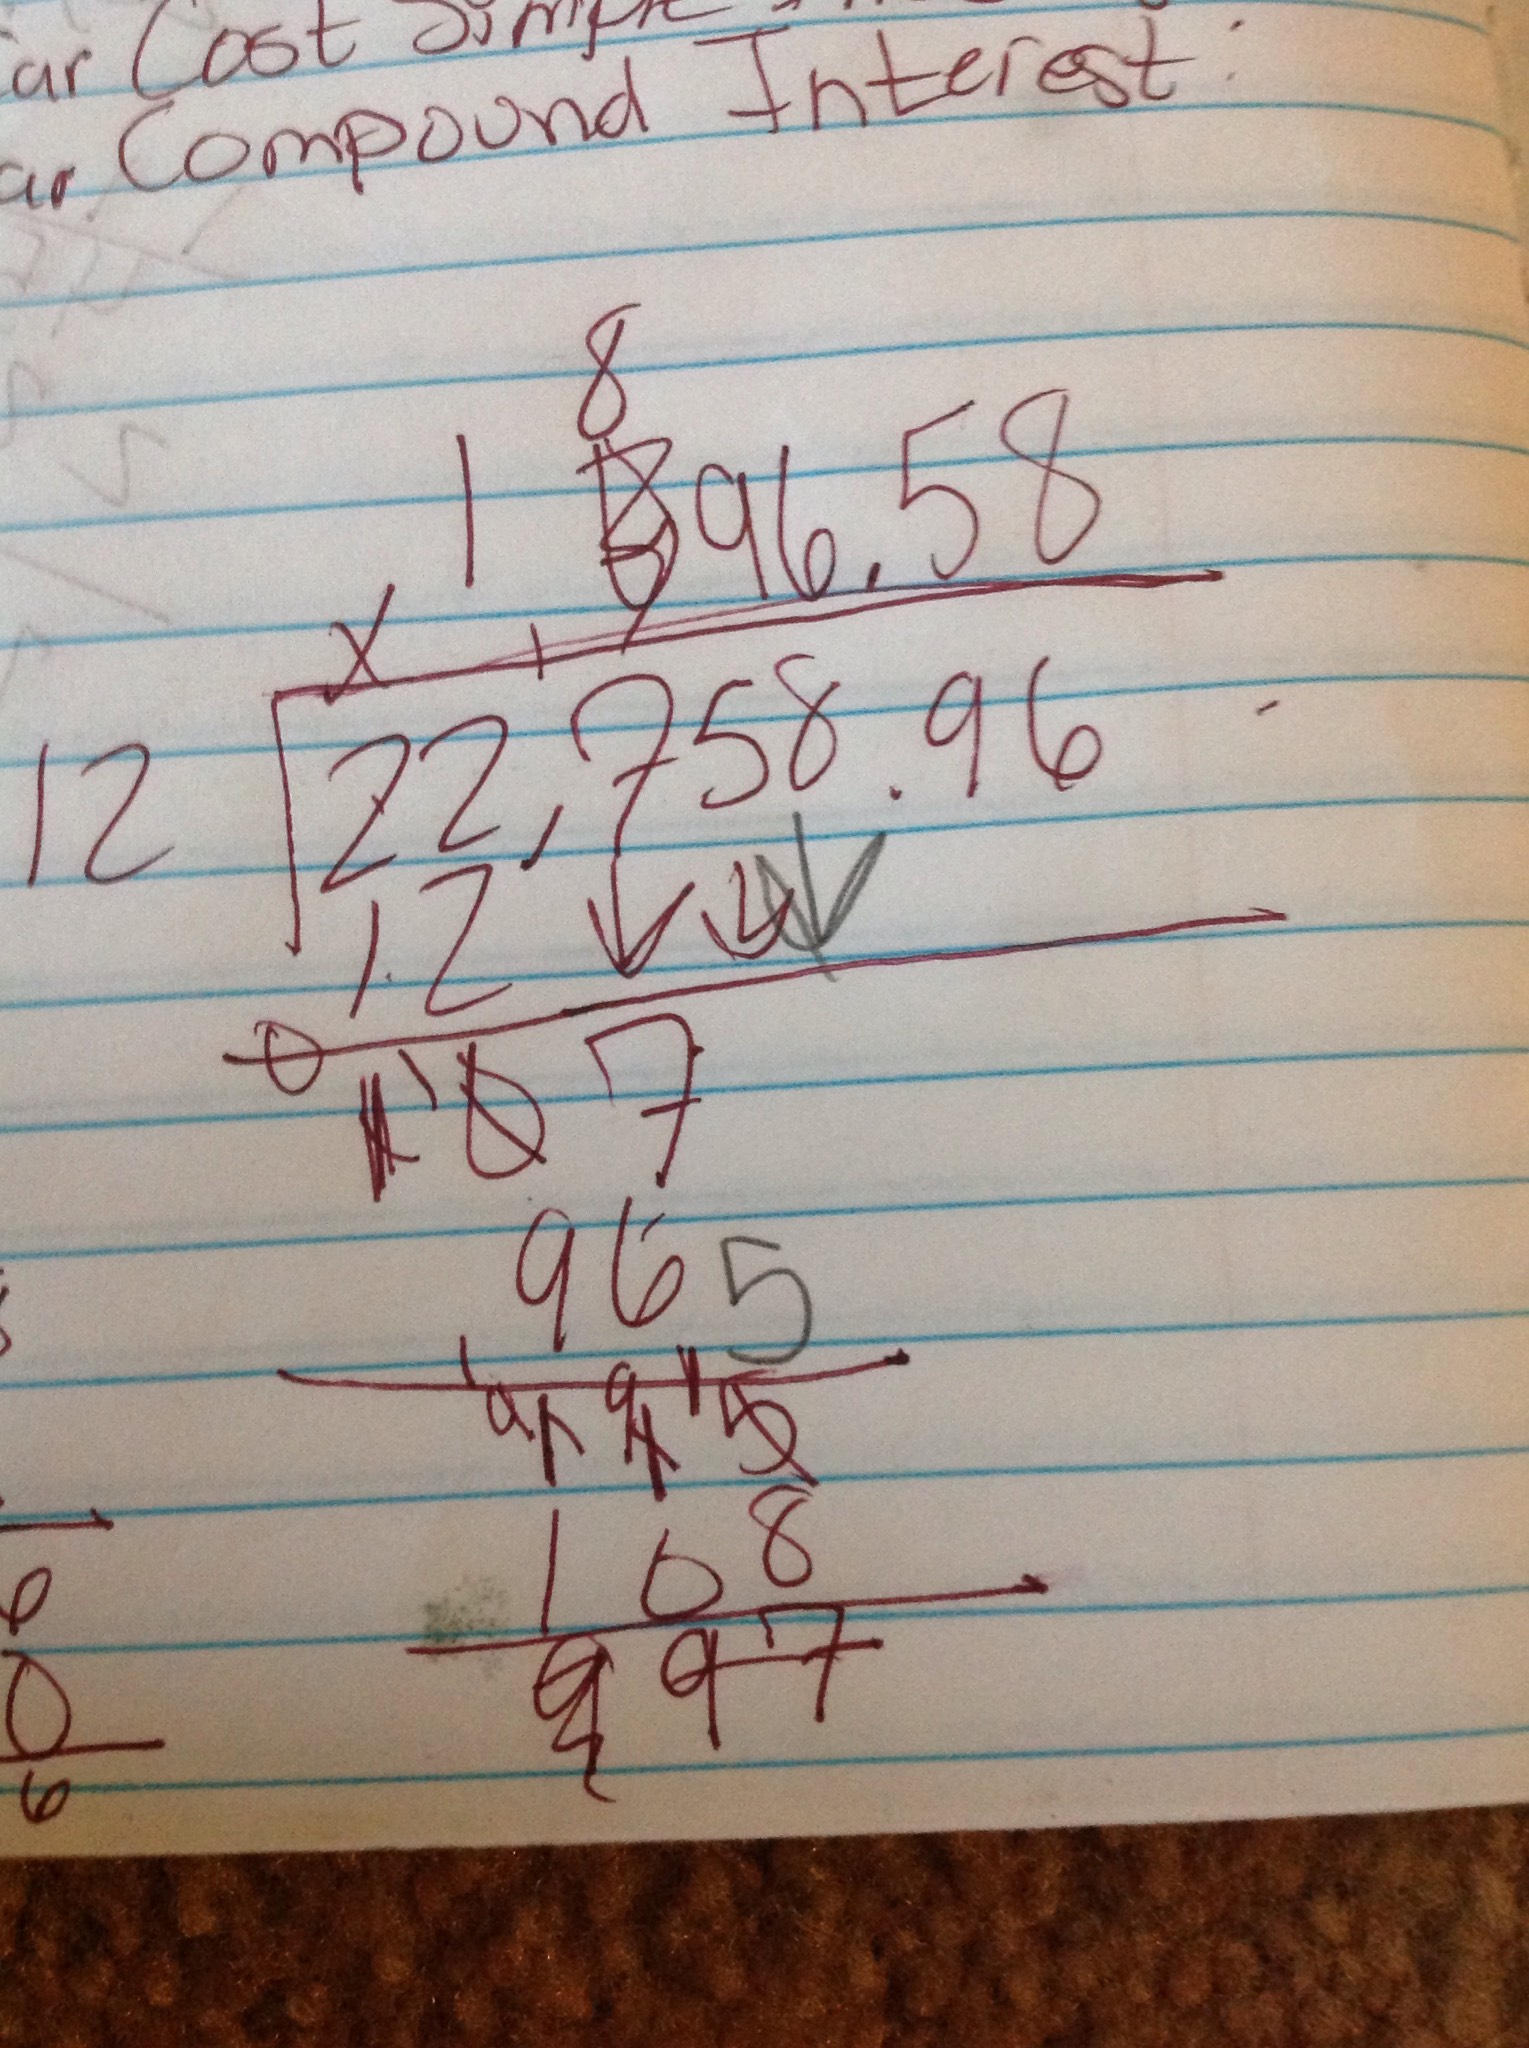 ar Cost Simple
ar Compound Interest:
8
1 896.58
x
12 22,758.96
12
0
107
96 5
1 1 5
108
997
0
0
6